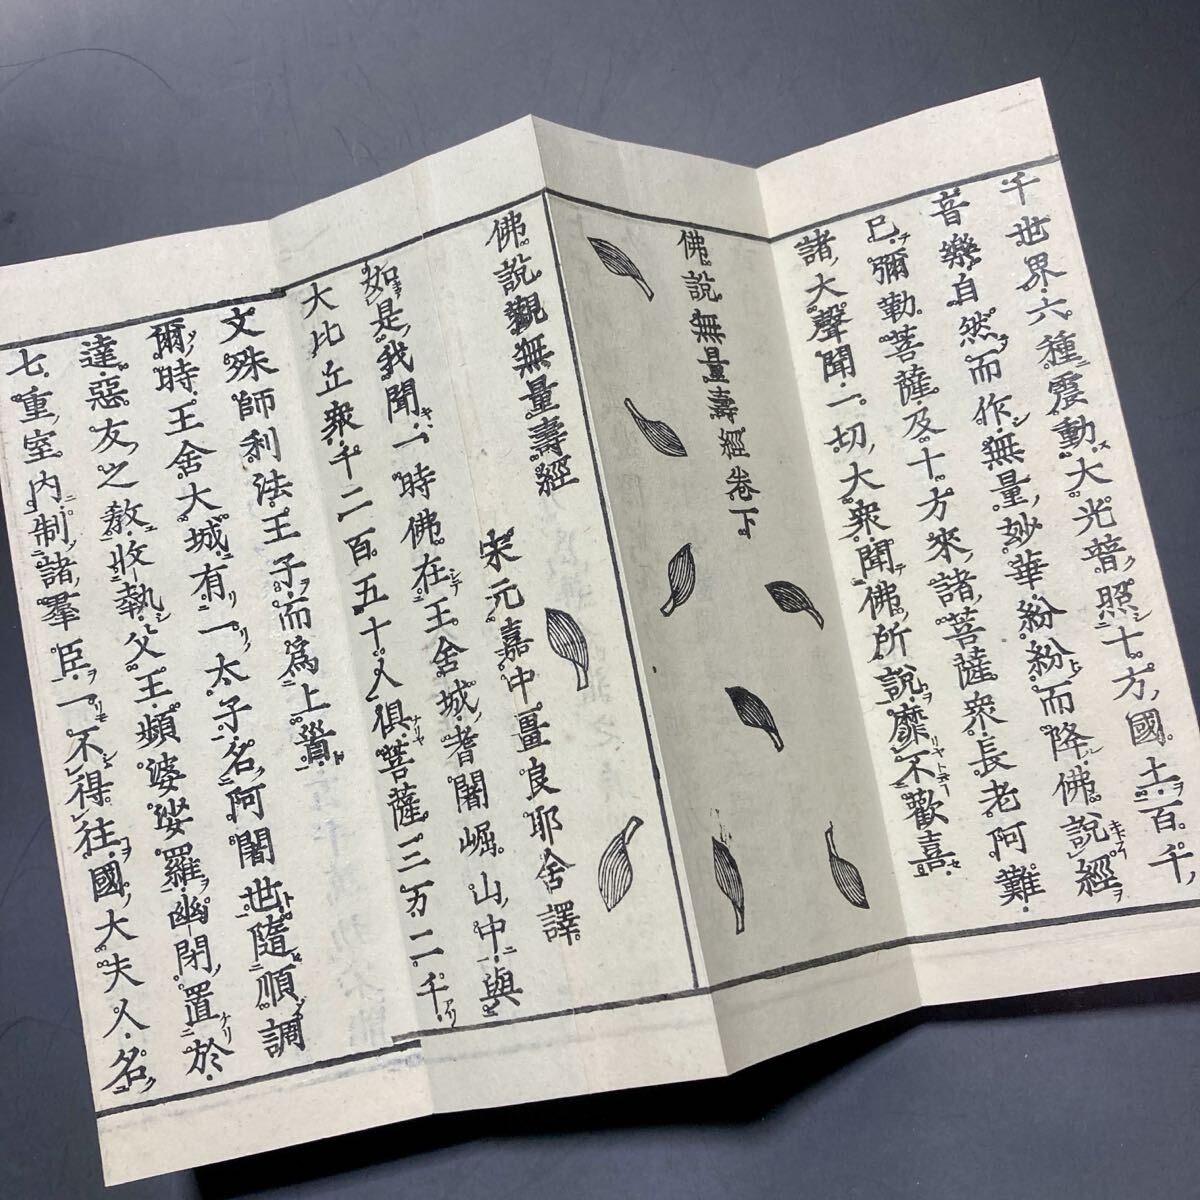 千世界六種震動大光普照十方國土百千
音樂自然而作無量妙華紛紛而降佛說經
已彌勒菩薩及十方來諸菩薩衆長老阿難
諸大聲聞一切大衆聞佛所說靡不歡喜
佛說無量壽經卷下
佛說觀無量壽經
宋元嘉中畺良耶舍譯
如是我聞一時佛在王舍城耆闍崛山中與
大比丘衆千二百五十人俱菩薩三万二千
文殊師利法王子而爲上首
爾時王舍大城有一太子名阿闍世隨順調
達惡友之教收執父王頻婆娑羅幽閉置於
七重室内制諸羣臣一不得往國大夫人名